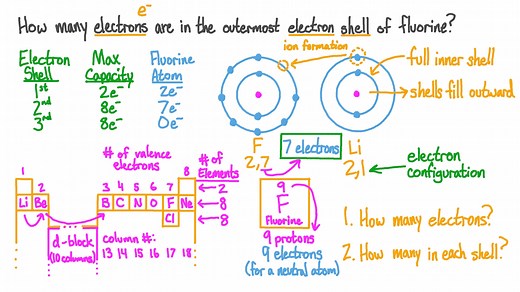 e⁻
How many electrons are in the outermost electron shell of fluorine?
Electron Shell
Max Capacity
Fluorine Atom
1st 2e⁻ 2e⁻
2nd 8e⁻ 7e⁻
3rd 8e⁻ 0e⁻
ion formation
full inner shell
shells fill outward
F
2,7
7 electrons
Li
2,1
electron configuration
# of valence electrons
# of Elements
1 8
2 3 4 5 6 7 2
Li Be B C N O F Ne 8
Cl 8
d-block
(10 columns)
column #:
13 14 15 16 17 18
9
F
Fluorine
9 protons
9 electrons
(for a neutral atom)
1. How many electrons?
2. How many in each shell?